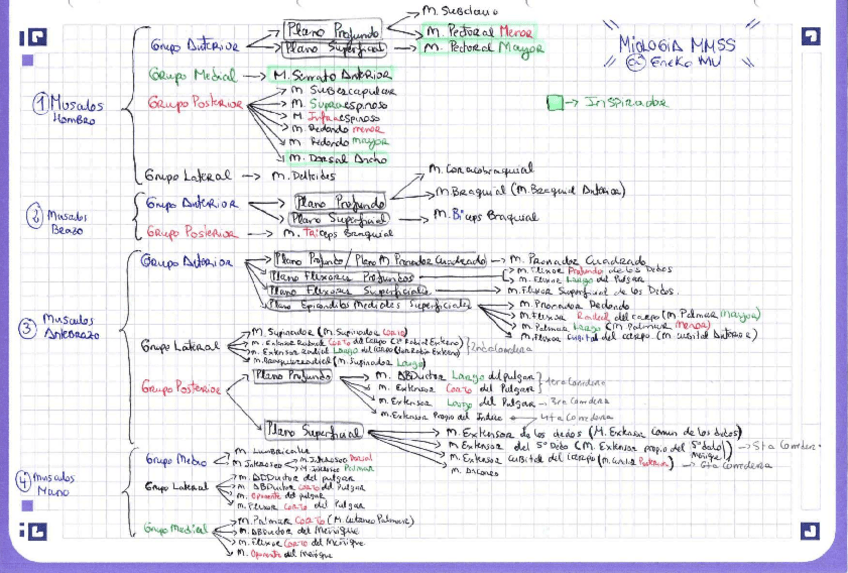 MIOLOGIA MMSS
Eneko MU
→ Inspirador
① Musculos Hombro
Grupo Anterior
Plano Profundo
M. Subclavio
M. Pectoral Menor
Plano Superficial → M. Pectoral Mayor
Grupo Medial → M. Serrato Anterior
Grupo Posterior
M. Subescapular
M. Supraespinoso
M. Infraespinoso
M. Redondo menor
M. Redondo mayor
M. Dorsal Ancho
Grupo Lateral → M. Deltoides
② Musculos Brazo
Grupo Anterior
Plano Profundo
M. Coracobraquial
M. Braquial (M. Braquial Anterior)
Plano Superficial → M. Biceps Braquial
Grupo Posterior → M. Triceps Braquial
③ Musculos Antebrazo
Grupo Anterior
Plano Profundo / Plano M. Pronador Cuadrado → M. Pronador Cuadrado
Plano Flexores Profundos
M. Flexor Profundo de los Dedos
M. Flexor Largo del Pulgar
Plano Flexores Superficiales → M. Flexor Superficial de los Dedos.
Plano Epicondileos Mediales Superficiales
M. Pronador Redondo
M. Flexor Radial del carpo (M. Palmar Mayor)
M. Palmar Largo (M. Palmar Menor)
M. Flexor Cubital del carpo (M. cubital Anterior)
Grupo Lateral
M. Supinador (M. Supinador Corto)
M. Extensor Radial Corto del Carpo
M. Extensor Radial Largo del Carpo
2nda Corredera
(M. Supinador Largo)
Grupo Posterior
Plano Profundo
M. ABDuctor Largo del pulgar
M. Extensor Corto del Pulgar
1era Corredera
M. Extensor Largo del Pulgar → 3era Corredera
M. Extensor Propio del Indice
4ta Corredera
Plano Superficial
M. Extensor de los dedos (M. Extensor Comun de los dedos)
M. Extensor del 5º Dedo (M. Extensor propio del 5º dedo / Meñique) → 5ta Corredera
M. Extensor Cubital del carpo (M. Cubital Posterior) → 6ta Corredera
M. Anconeo
④ Musculos Mano
Grupo Medio
M. Lumbricales
M. Interoseo
M. Interoseo Dorsal
M. Interoseo Palmar
Grupo Lateral
M. ADDuctor del pulgar
M. ABDuctor Corto del Pulgar
M. Oponente del pulgar
M. Flexor Corto del Pulgar
Grupo Medial
M. Palmar Corto (M. Cutaneo Palmar)
M. ABDuctor del Meñique
M. Flexor Corto del Meñique
M. Oponente del Meñique